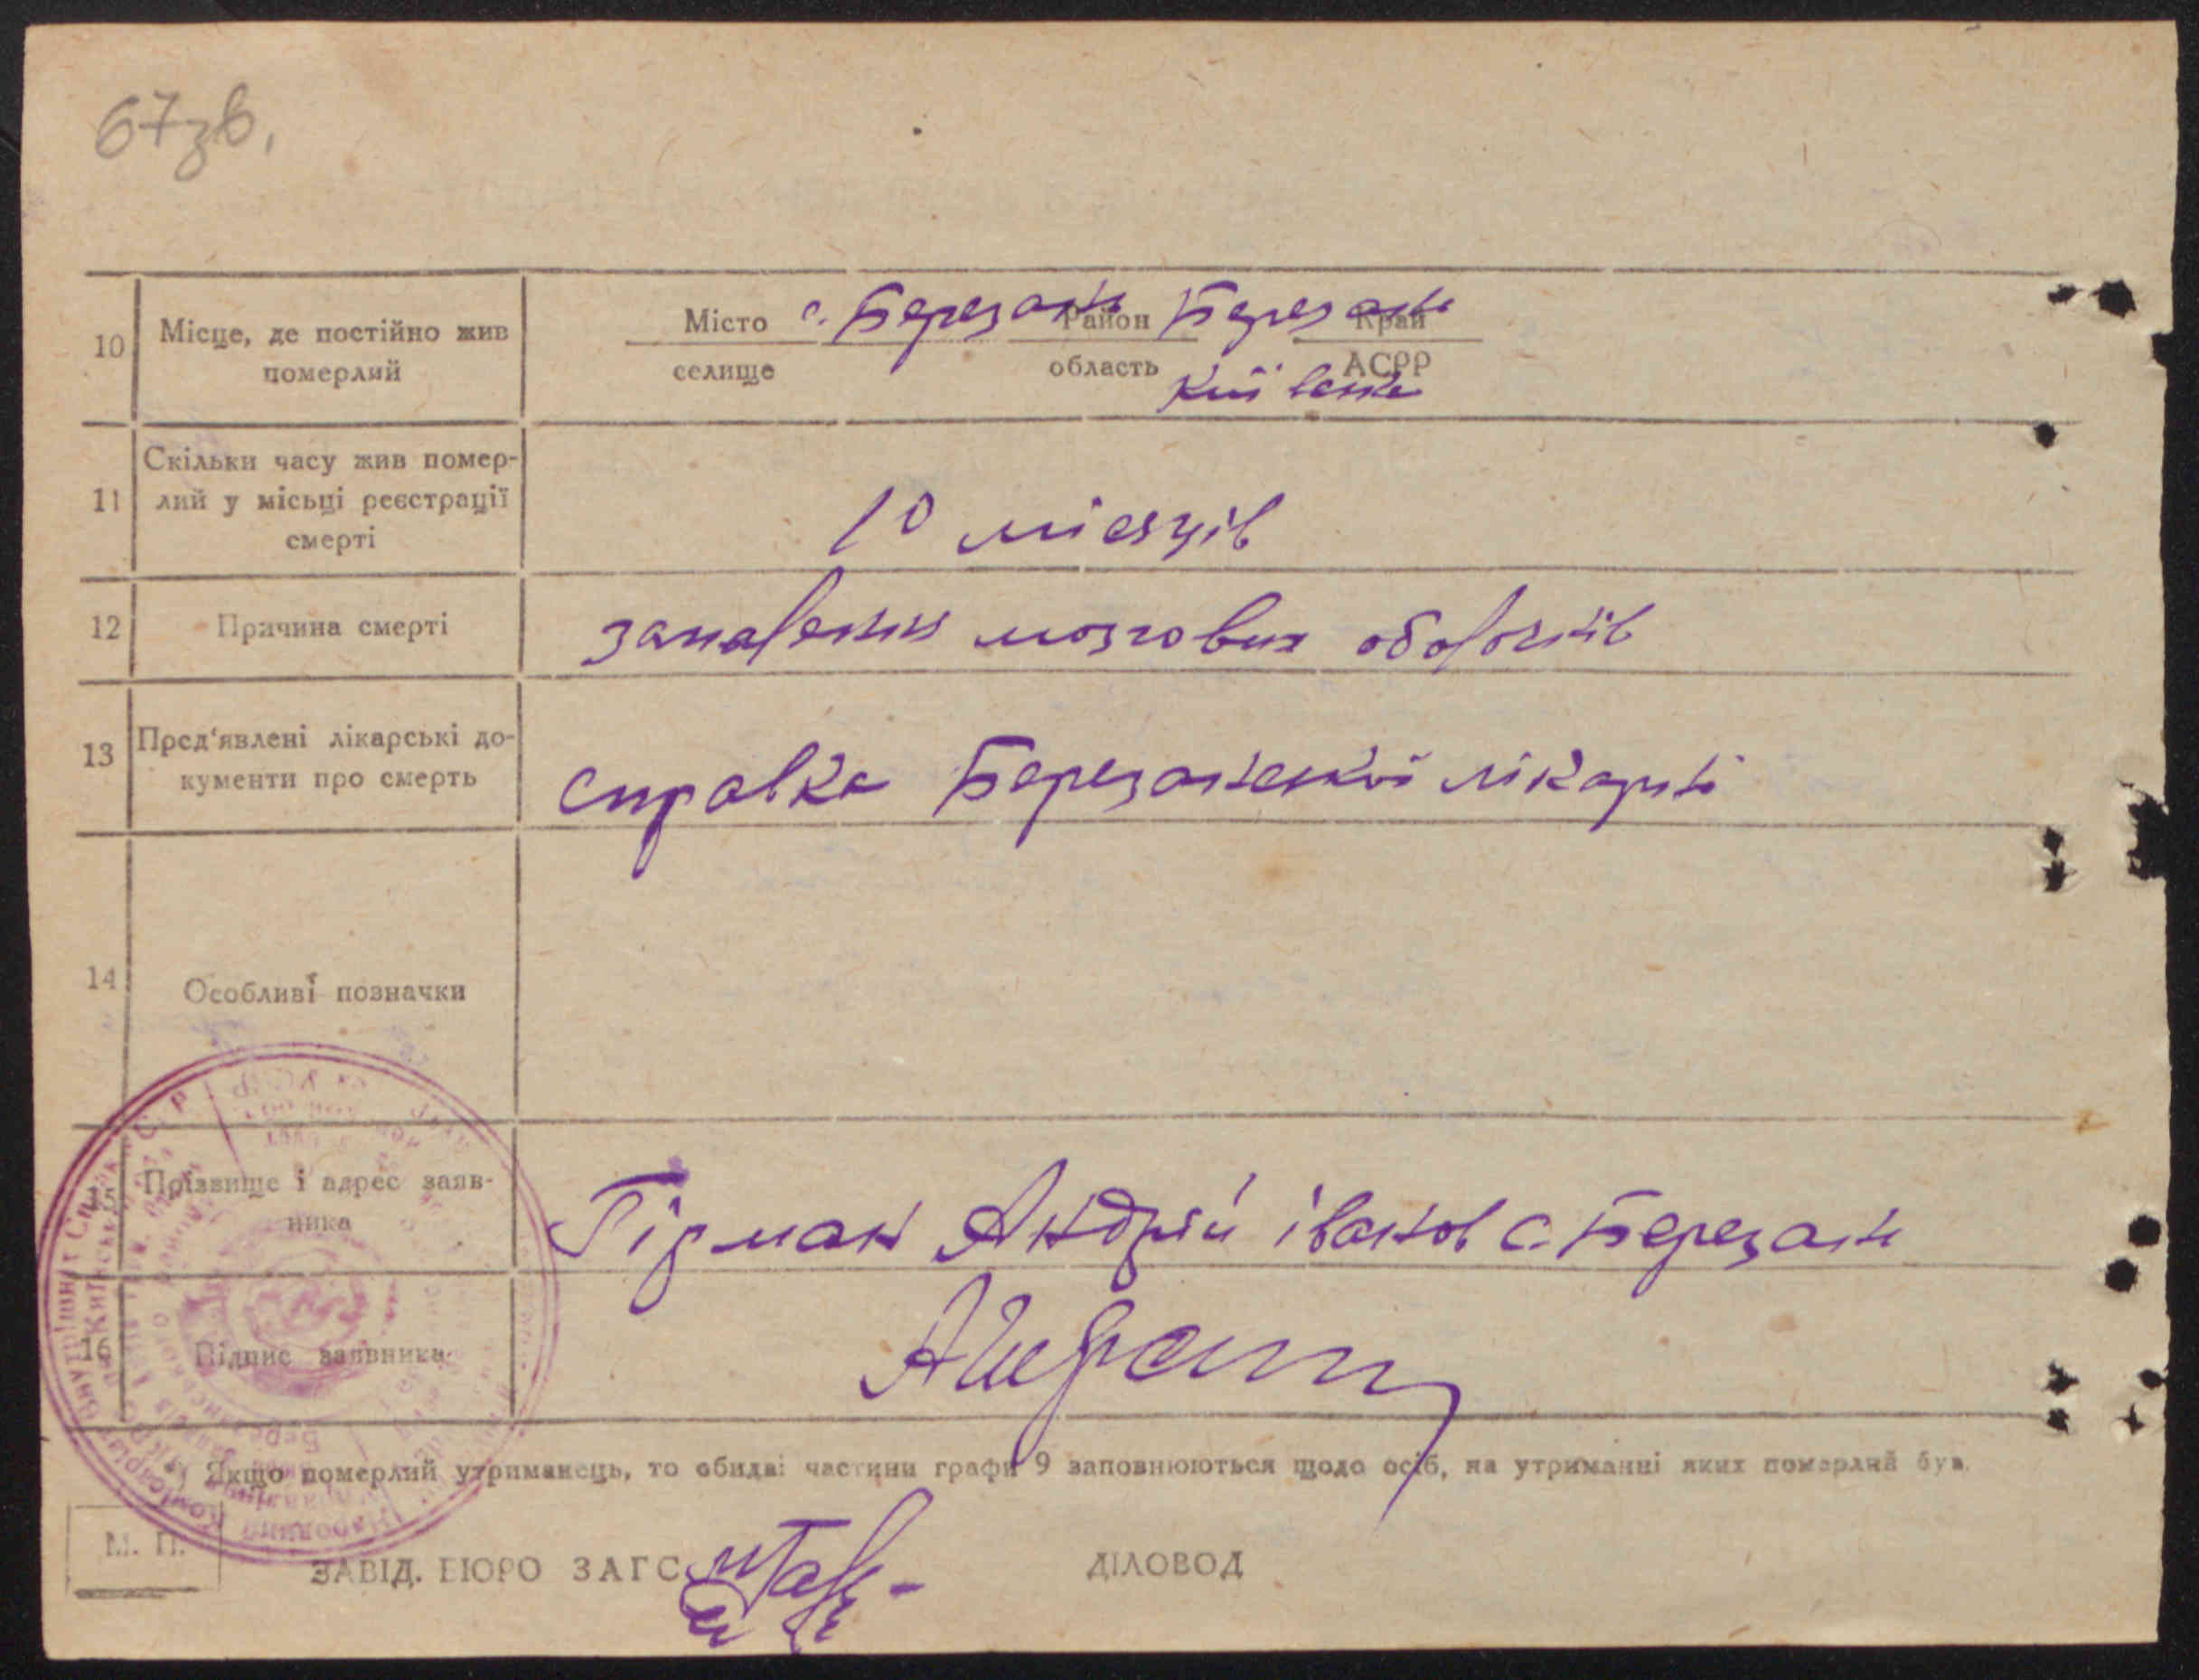 67зв.
10 Місце, де постійно жив померлий
Місто с. Березань Район Березань Край
селище область Київська АСРР
11 Скільки часу жив помер-
лий у місьці реєстрації
смерті
10 місяців
12 Причина смерті
запалення мозгових оболочків
13 Пред'явлені лікарські до-
кументи про смерть
справка Березанської лікарні
14 Особливі позначки
15 Прізвище і адрес заяв-
ника
Гірман Андрій іванов с. Березань
16 Підпис заявника
*) Якщо померлий утриманець, то обидві частини графи 9 заповнюються щодо осіб, на утриманні яких померлий був.
М. П.
ЗАВІД. БЮРО ЗАГС
ДІЛОВОД